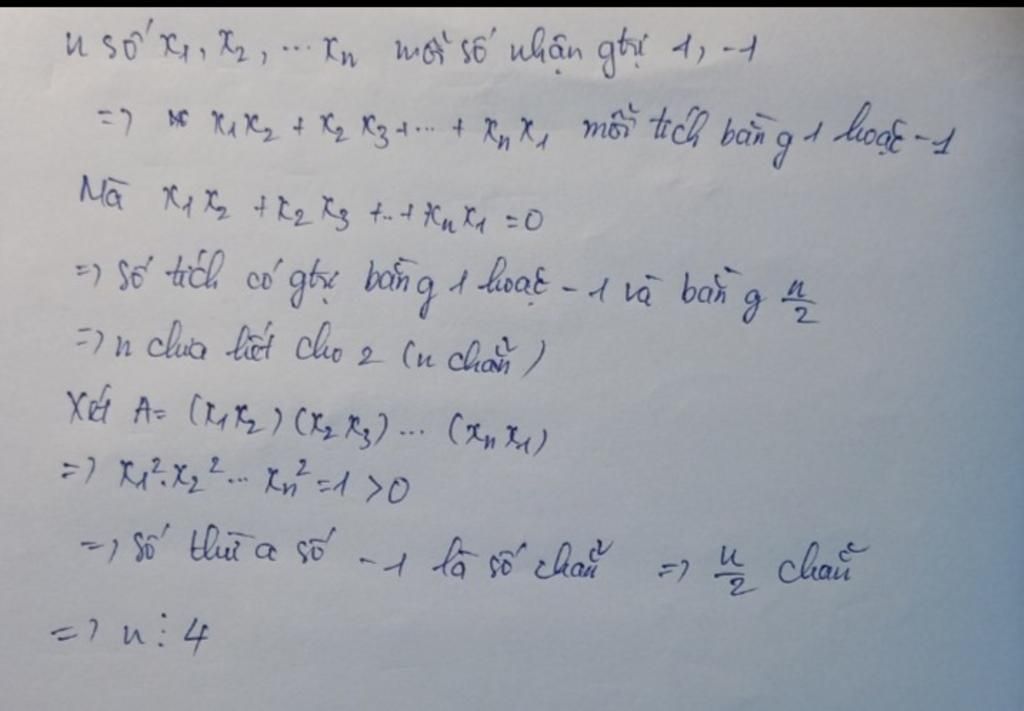 n số x₁, x₂, ... xₙ mỗi số nhận gtrị 1, -1
=> x₁x₂ + x₂x₃ + ... + xₙx₁ mỗi tích bằng 1 hoặc -1
Mà x₁x₂ + x₂x₃ + .. + xₙx₁ = 0
=> số tích có gtrị bằng 1 hoặc -1 và bằng n/2
=> n chia hết cho 2 (n chẵn)
Xét A = (x₁x₂)(x₂x₃) ... (xₙx₁)
=> x₁².x₂² ... xₙ² = 1 > 0
=> số thừa số -1 là số chẵn => n/2 chẵn
=> n ⋮ 4